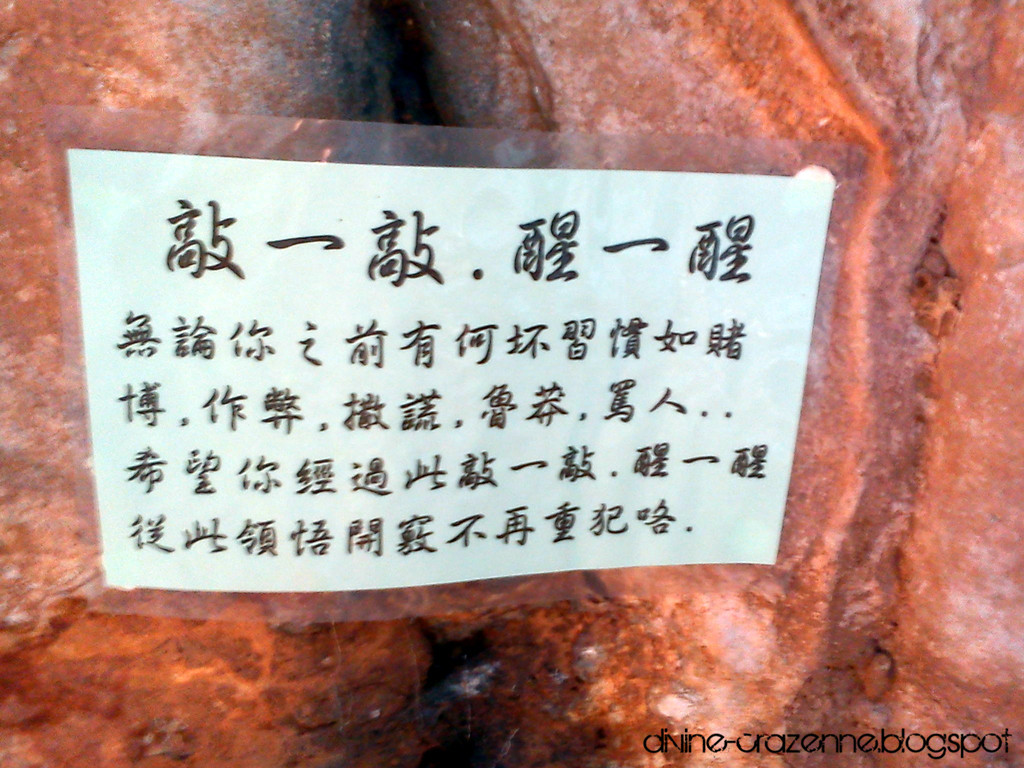 敲一敲.醒一醒
無論你之前有何坏習慣如賭
博,作弊,撒謊,魯莽,罵人..
希望你經過此敲一敲.醒一醒
從此領悟開竅不再重犯咯.
divine-crazenne.blogspot